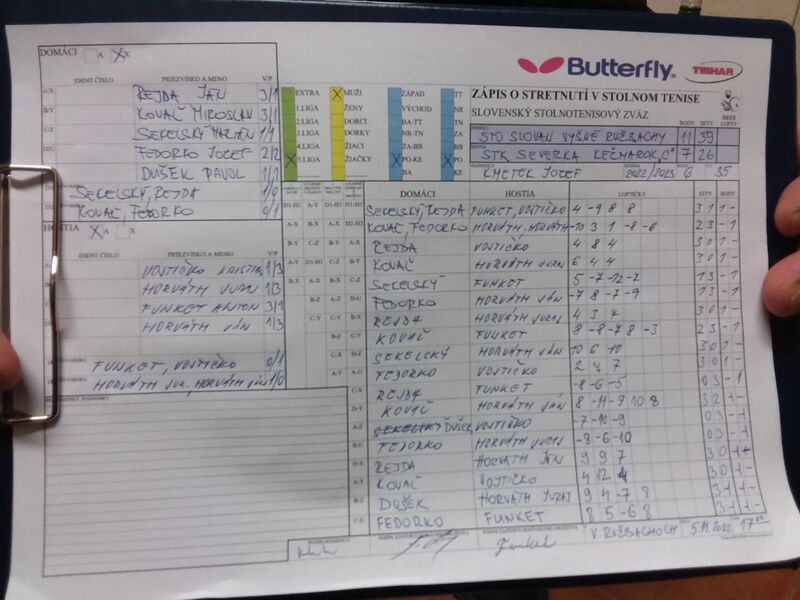 DOMÁCI A X
IDENT.ČÍSLO PRIEZVISKO A MENO V/P
A/X REJDA JÁN 3/1
B/Y KOVAČ MIROSLAV 3/1
C/Z SEKELSKÝ MARIÁN 1/1
D/U FEDORKO JOZEF 2/2
DUŠEK PAVOL 1/1
SEKELSKÝ, REJDA 1/0
KOVAČ, FEDORKO 0/1
HOSTIA A X
IDENT.ČÍSLO PRIEZVISKO A MENO V/P
VOJTIČKO KRISTIÁN 1/3
HORVÁTH JURAJ 1/3
FUNKET ANTON 3/1
HORVÁTH JÁN 1/3
FUNKET, VOJTIČKO 0/1
HORVÁTH JUR, HORVÁTH JÁN 1/0
EXTRA MUŽI ZÁPAD TT
1.LIGA ŽENY VÝCHOD NR
2.LIGA DORCI BA-TT TN
3.LIGA DORKY NR-TN ZA
4.LIGA ŽIACI ZA-BB BB
5.LIGA ŽIAČKY PO-KE PO
BA KE
Butterfly TIBHAR
ZÁPIS O STRETNUTÍ V STOLNOM TENISE
SLOVENSKÝ STOLNOTENISOVÝ ZVÄZ
DOMÁCI BODY SETY
STO SLOVAN VYŠNÉ RUŽBACHY 11 39
STK SEVERKA KEŽMAROK "C" 7 26
KMETEK JOZEF 2022/2023 6 35
DOMÁCI HOSTIA LOPTIČKY SETY BODY
SEKELSKÝ, REJDA FUNKET, VOJTIČKO 4 -9 8 8 3 1 1 -
KOVAČ, FEDORKO HORVÁTH, HORVÁTH -10 3 1 -8 -6 2 3 - 1
REJDA VOJTIČKO 4 8 4 3 0 1 -
KOVAČ HORVÁTH JURAJ 6 4 4 3 0 1 -
SEKELSKÝ FUNKET 5 -7 -12 -7 1 3 - 1
FEDORKO HORVÁTH JÁN -7 8 -7 -9 1 3 - 1
REJDA HORVÁTH JURAJ 4 3 7 3 0 1 -
KOVAČ FUNKET 8 -8 -7 8 -3 2 3 - 1
SEKELSKÝ HORVÁTH JÁN 10 6 10 3 0 1 -
FEDORKO VOJTIČKO 2 7 3 0 1 -
REJDA FUNKET -8 -6 -5 0 3 - 1
KOVAČ HORVÁTH JÁN 8 -11 -9 10 8 3 2 1 -
DUŠEK VOJTIČKO -7 -10 -9 0 3 - 1
FEDORKO HORVÁTH JURAJ -8 -6 -10 0 3 - 1
REJDA HORVÁTH JÁN 9 9 7 3 0 1 -
KOVAČ VOJTIČKO 4 12 4 3 0 1 -
DUŠEK HORVÁTH JURAJ 9 4 -7 8 3 1 1 -
FEDORKO FUNKET 8 5 -6 8 3 1 1 -
V. RUŽBACHOCH 5.11.2022 17